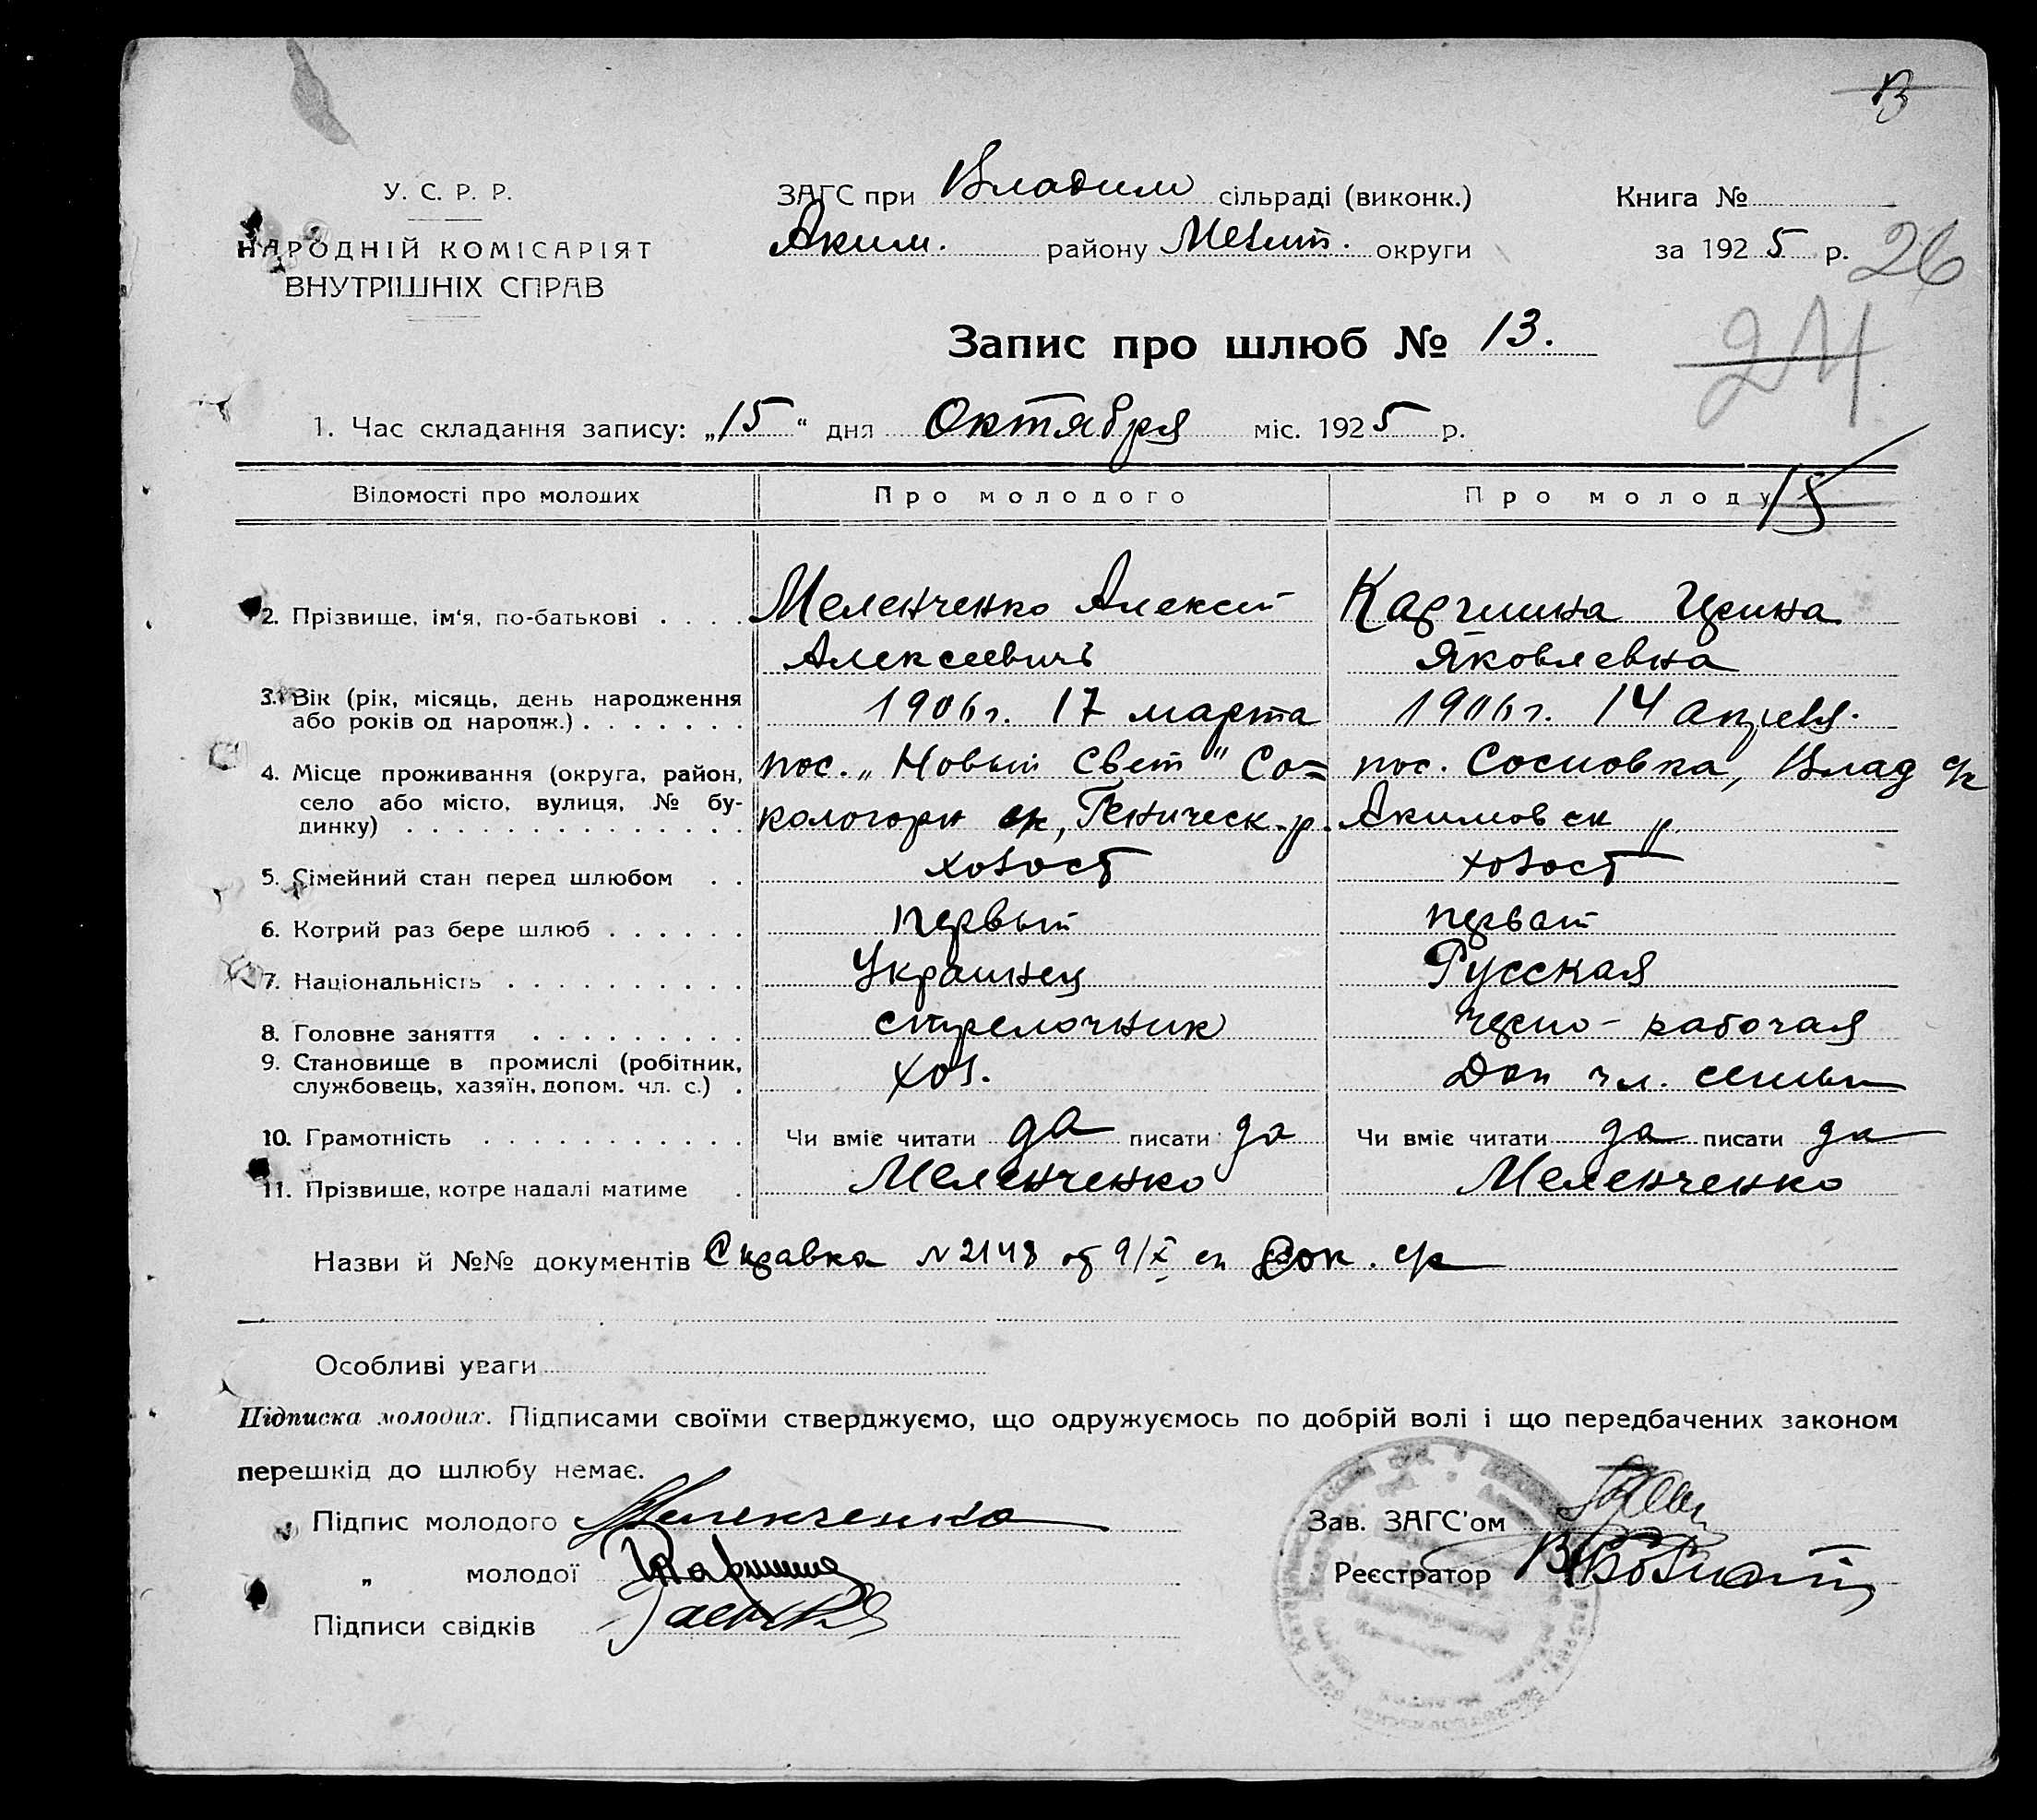 В
У. С. Р. Р.
НАРОДНІЙ КОМІСАРІЯТ
ВНУТРІШНІХ СПРАВ
ЗАГС при Владим сільраді (виконк.)
Аким. району Мелит. округи
Книга №
за 1925 р. 26
Запис про шлюб № 13.
24
1. Час складання запису: „15“ дня Октября міс. 1925 р.
15
Відомості про молодих Про молодого Про молоду
2. Прізвище, ім'я, по-батькові Меленченко Алексей Каргшина Ирина
Алексеевичъ Яковлевна
3. Вік (рік, місяць, день народження або років од народж.) 1906 г. 17 марта 1906 г. 14 апреля.
4. Місце проживання (округа, район, село або місто, вулиця, № будинку) пос. „Новый Свет" Со= пос. Сосновка, Влад с/р
кологорн ср, Геническ. р. Акимовск р.
5. Сімейний стан перед шлюбом холост холост
6. Котрий раз бере шлюб первый первый
7. Національність Украинец Русская
8. Головне заняття стрелочник черно-рабочая
9. Становище в промислі (робітник, службовець, хазяїн, допом. чл. с.) хоз. Доп чл. семьи
10. Грамотність Чи вміє читати да писати да Чи вміє читати да писати да
11. Прізвище, котре надалі матиме Меленченко Меленченко
Назви й №№ документів Справка №2148 от 9/X Сок. с/р
Особливі уваги
Підписка молодих. Підписами своїми стверджуємо, що одружуємось по добрій волі і що передбачених законом
перешкід до шлюбу немає.
Підпис молодого Меленченко
„ молодої
Підписи свідків
Зав. ЗАГС'ом
Реєстратор